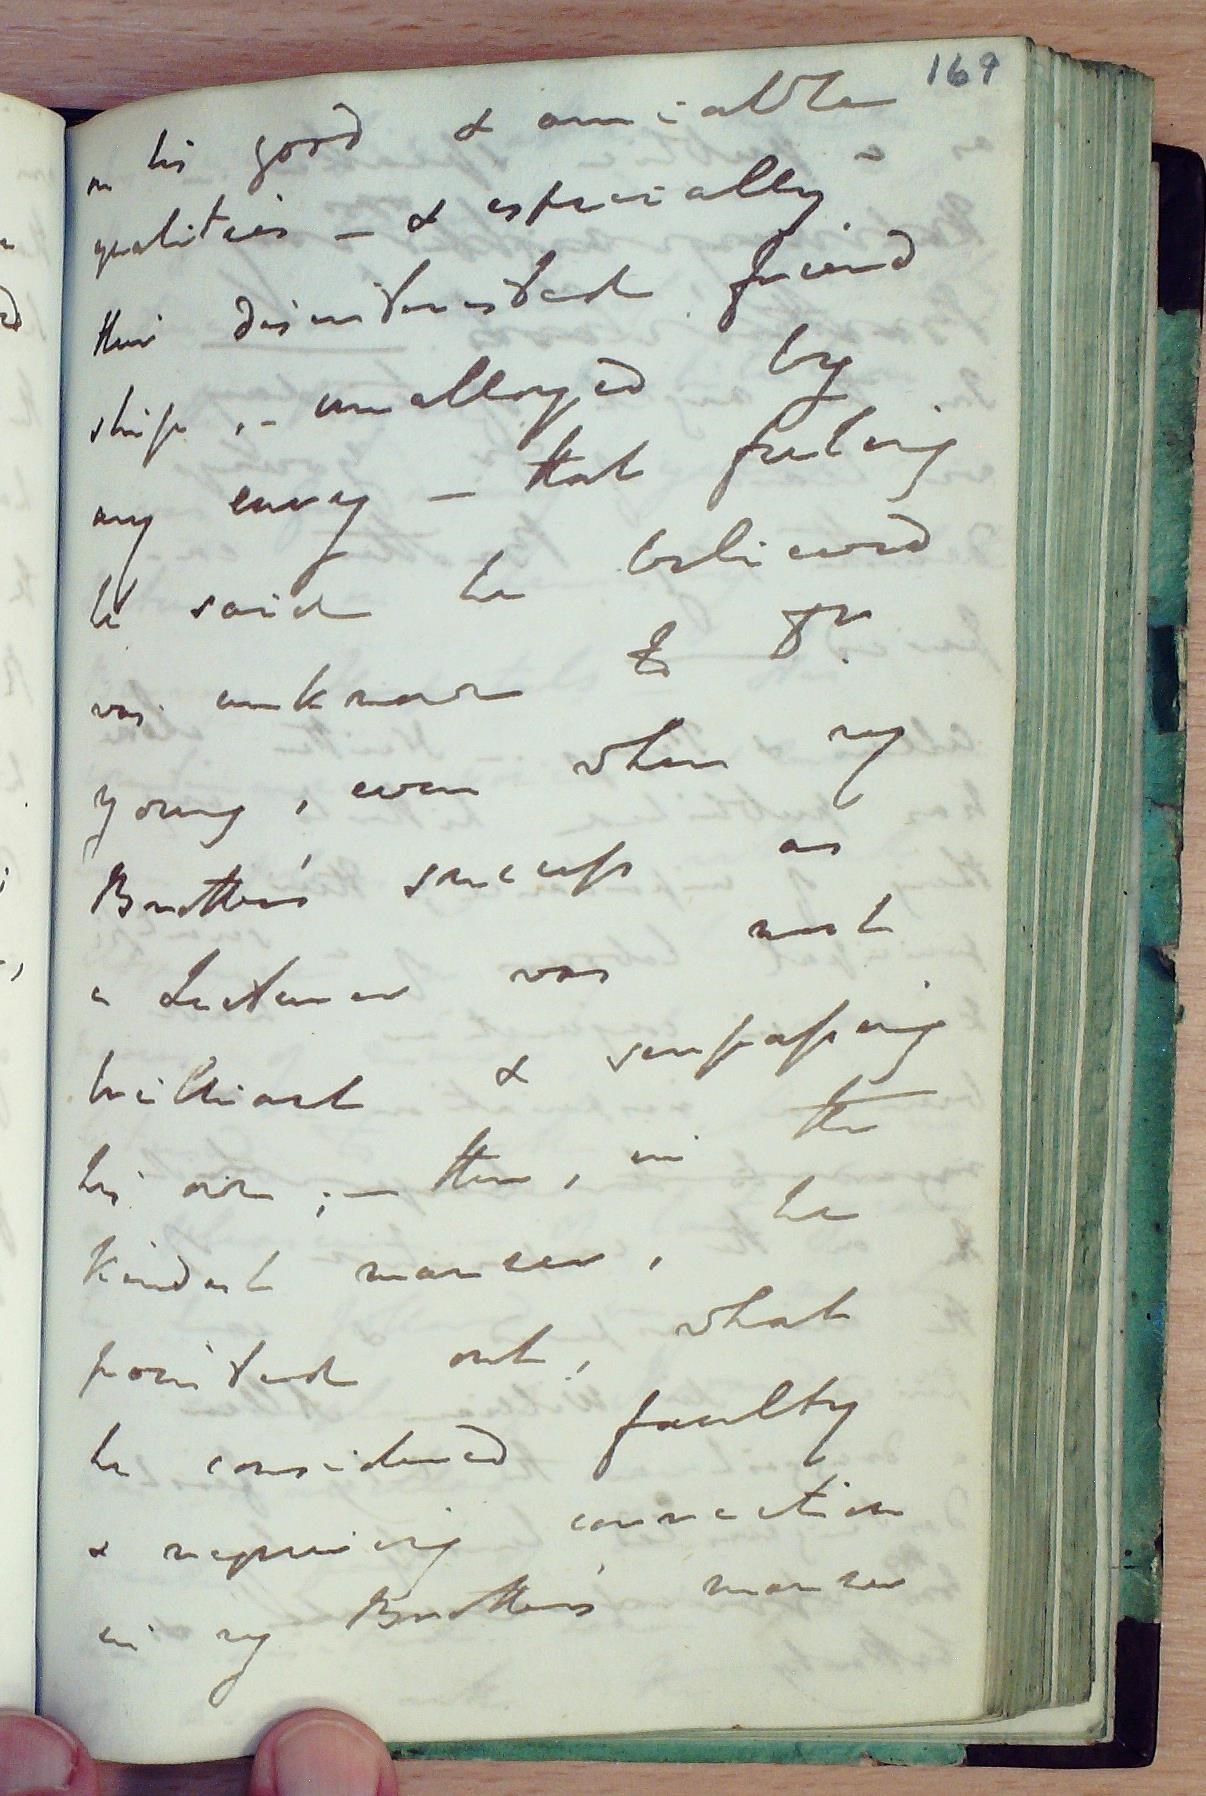 169
on his good & amiable
qualities – & especially
their disinterested friend
ship, – unalloyed by
any envy – that feeling
he said he believed
was unknown to Dr
young, even when my
Brother's success as
a Lecturer was most
brilliant & surpassing
his own; – then, in the
kindest manner, he
pointed out, what
he considered faulty
& requiring correction
in my Brother's manner